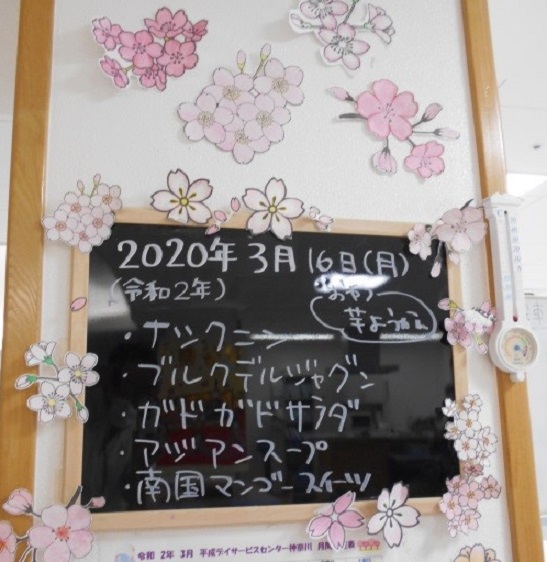 2020年 3月 16日(月)
(令和2年)
おやつ
芋ようかん
・ナシクニン
・ブルクデルジャグン
・ガドガドサラダ
・アジアンスープ
・南国マンゴースイーツ
令和 2年 3月 平成デイサービスセンター神奈川